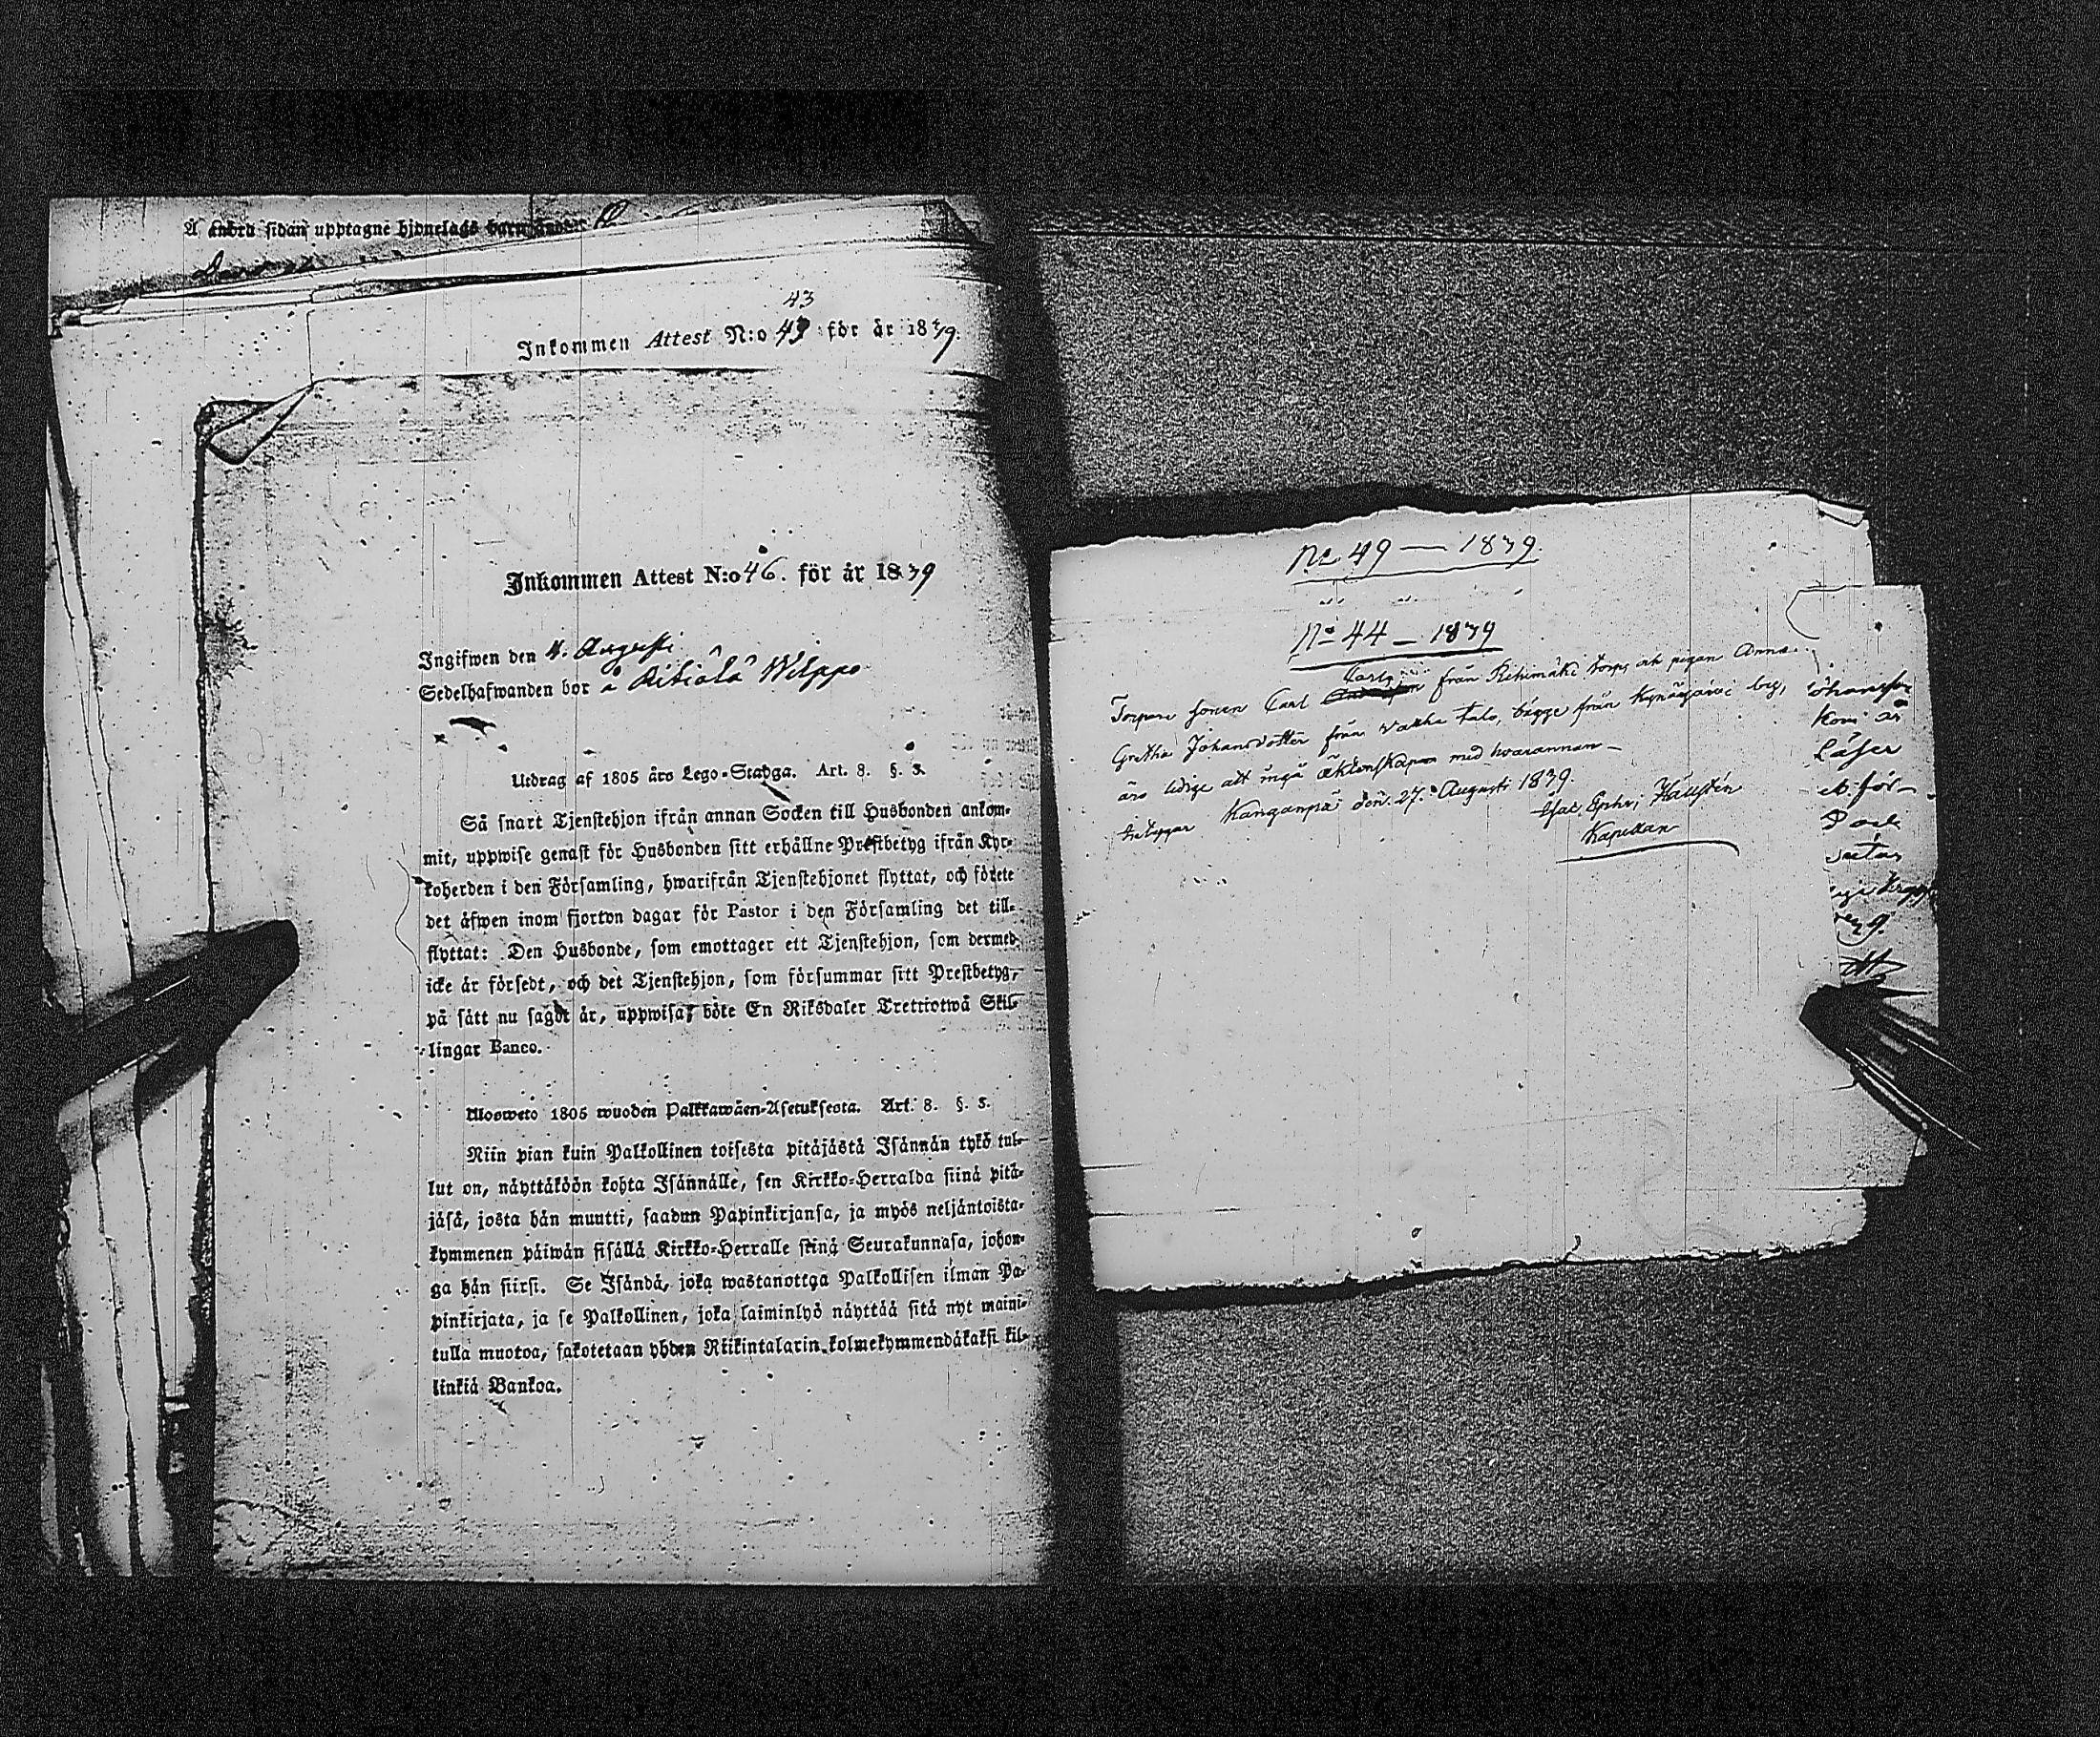 Å andra sidan upptagne hjonelags barn äro:
43
Inkommen Attest N:o 43 för år 1839.
Inkommen Attest N:o 46. för år 1839
Ingifwen den 4. Augusti
Sedelhafwanden bor å Witpo
Utdrag af 1805 års Lego-Stadga. Art. 8. §. 3.
Så snart Tjenstehjon ifrån annan Socken till Husbonden ankom-
mit, uppwise genast för Husbonden sitt erhållne Prestbetyg ifrån Kyr-
koherden i den Församling, hwarifrån Tjenstehjonet flyttat, och förete
det äfwen inom fjorton dagar för Pastor i den Församling det till-
flyttat: Den Husbonde, som emottager ett Tjenstehjon, som dermed
icke är försedt, och det Tjenstehjon, som försummar sitt Prestbetyg,
på sätt nu sagdt är, uppwisa, böte En Riksdaler Trettiotwå Skil-
lingar Banco.
Ulosweto 1805 wuoden Palkkawäen-Asetuksesta. Art. 8. §. 3.
Niin pian kuin Palkollinen toisesta pitäjästä Isännän tykö tul-
lut on, näyttäköön kohta Isännälle, sen Kirkko-Herralda siinä pitä-
jäsä, josta hän muutti, saadun Papinkirjansa, ja myös neljäntoista-
kymmenen päiwän sisällä Kirkko-Herralle siinä Seurakunnasa, johon-
ga hän siirsi. Se Isändä, joka wastanottaa Palkollisen ilman Pa-
pinkirjata, ja se Palkollinen, joka laiminlyö näyttää sitä nyt maini-
tulla muotoa, sakotetaan yhden Riikintalarin kolmekymmendäkaksi kil-
linkiä Bankoa.
No 49 — 1839.
No 44 — 1839
Carls
Torpare sonen Carl från Rihimäki torp, och pigan Anna
Gretha Johansdotter från Vanha talo, bägge från Kynäsjärvi by,
äro ledige att ingå äktenskapen med hvarannan —
betygar Kanganpä den 27. Augusti 1839.
Jac. Ephr. Häusén
Kapellan
Läser